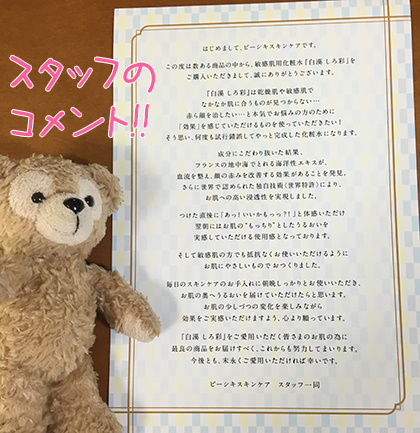 スタッフの
コメント!!
はじめまして、ビーシキスキンケアです。
この度は数ある商品の中から、敏感肌用化粧水『白漢 しろ彩』を
ご購入いただきまして、誠にありがとうございます。
『白漢 しろ彩』は乾燥肌や敏感肌で
なかなか肌に合うものが見つからない…
赤ら顔を治したい…と本気でお悩みの方のために
「効果」を感じていただけるものを使っていただきたい！
そう思い、何度も試行錯誤してやっと完成した化粧水になります。
成分にこだわり抜いた結果、
フランスの地中海でとれる海洋性エキスが、
血流を整え、顔の赤みを改善する効果があることを発見。
さらに世界で認められた独自技術（世界特許）により、
お肌への高い浸透性を実現しました。
つけた直後に「あっ！いいかもっっ?!」と体感いただけ
翌朝にはお肌の"もっちり"としたうるおいを
実感していただける使用感となっております。
そして敏感肌の方でも抵抗なくお使いいただけるように
お肌にやさしいものでおつくりました。
毎日のスキンケアのお手入れに朝晩しっかりとお使いいただき、
お肌の奥へうるおいを届けていただけたらと思います。
お肌の少しづつの変化を楽しみながら
効果をご実感いただけますよう、心より願っています。
『白漢 しろ彩』をご愛用いただく皆さまのお肌の為に
最良の商品をお届けすべく、これからも努力してまいります。
今後とも、末永くご愛用いただければ幸いです。
ビーシキスキンケア　スタッフ一同